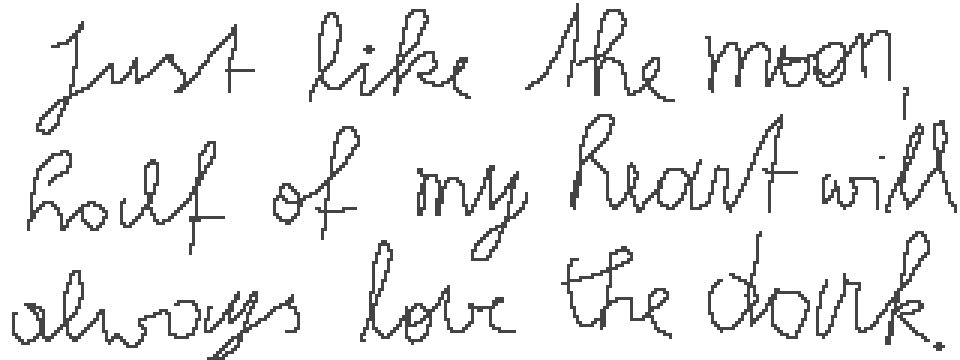 Just like the moon,
half of my heart will
always love the dark.